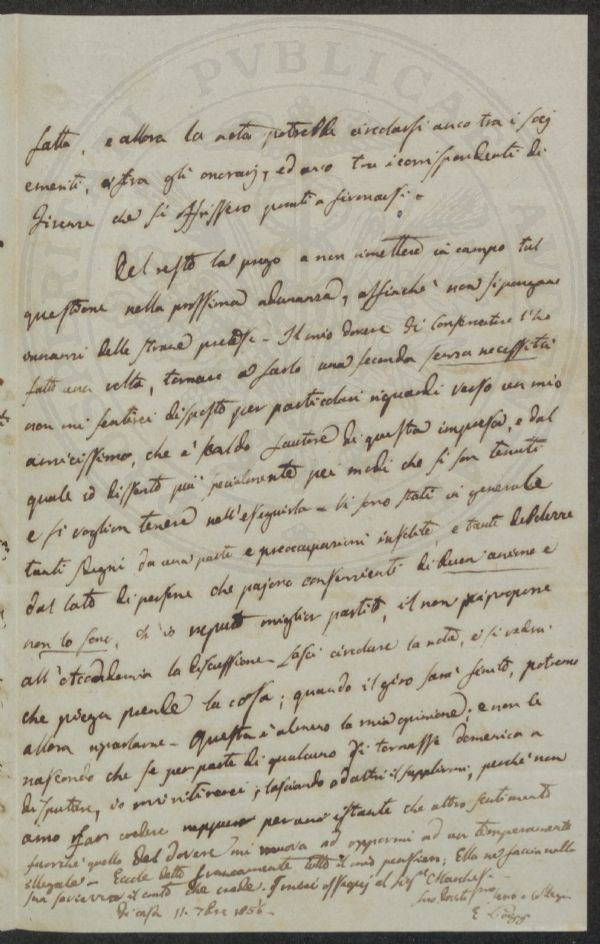 fatta, e allora la nota potrebbe circolarsi anco tra i socj
emeriti, e tra gli onorarj, ed anco tra i corrispondenti di
Firenze che si offrissero pronti a firmarsi.
Del resto la prego a non rimettere in campo tal
questione nella prossima adunanza, affinchè non si pongano
innanzi delle strane pretese. Il mio dovere di Conservatore l'ho
fatto una volta, tornare a farlo una seconda senza necessità
non mi sentirei disposto per particolari riguardi verso un mio
amicissimo, che è caldo fautore di questa impresa, e dal
quale io dissento più specialmente pei modi che si son tenuti
e si voglion tenere nell'eseguirla. Vi sono stati in generale
tanti da una parte e preoccupazioni insolite, e tante debolezze
dal lato di persone che pajono conservienti di buon animo e
non lo sono, ch'io reputo miglior partito, il non riproporre
all'Accademia la discussione. Lasci circolare la nota, e si vedrà
che piega prende la cosa; quando il giro sarà finito, potremo
allora riparlarne. Questa è almeno la mia opinione; e non le
nascondo che se per parte di qualcuno si tornasse domenica a
disputare, io mi ritirerei; lasciando ad altri il supplirmi, perchè non
amo far credere neppure per uno istante che altro sentimento
fuorchè quello del dovere mi muova ad oppormi ad un temperamento
illegale. Eccole detto francamente tutto il mio pensiero; Ella ne faccia nella
sua saviezza il conto che crede. I miei ossequj al Sig.re Marchese.
Suo devotissimo e Collega
Di casa 11. 7bre 1856.
E. Poggi